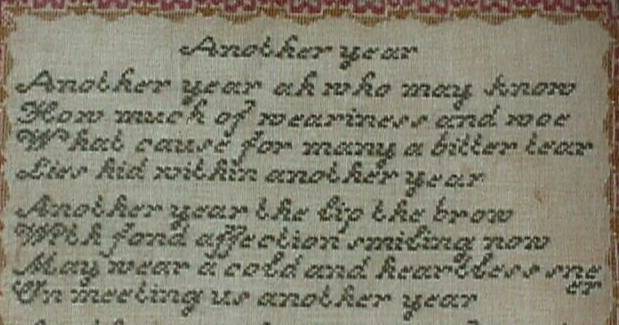 Another year
Another year ah who may know
How much of weariness and woe
What cause for many a bitter tear
Lies hid within another year
Another year the lip the brow
With fond affection smiling now
May wear a cold and heartless sne
er
On meeting us another year